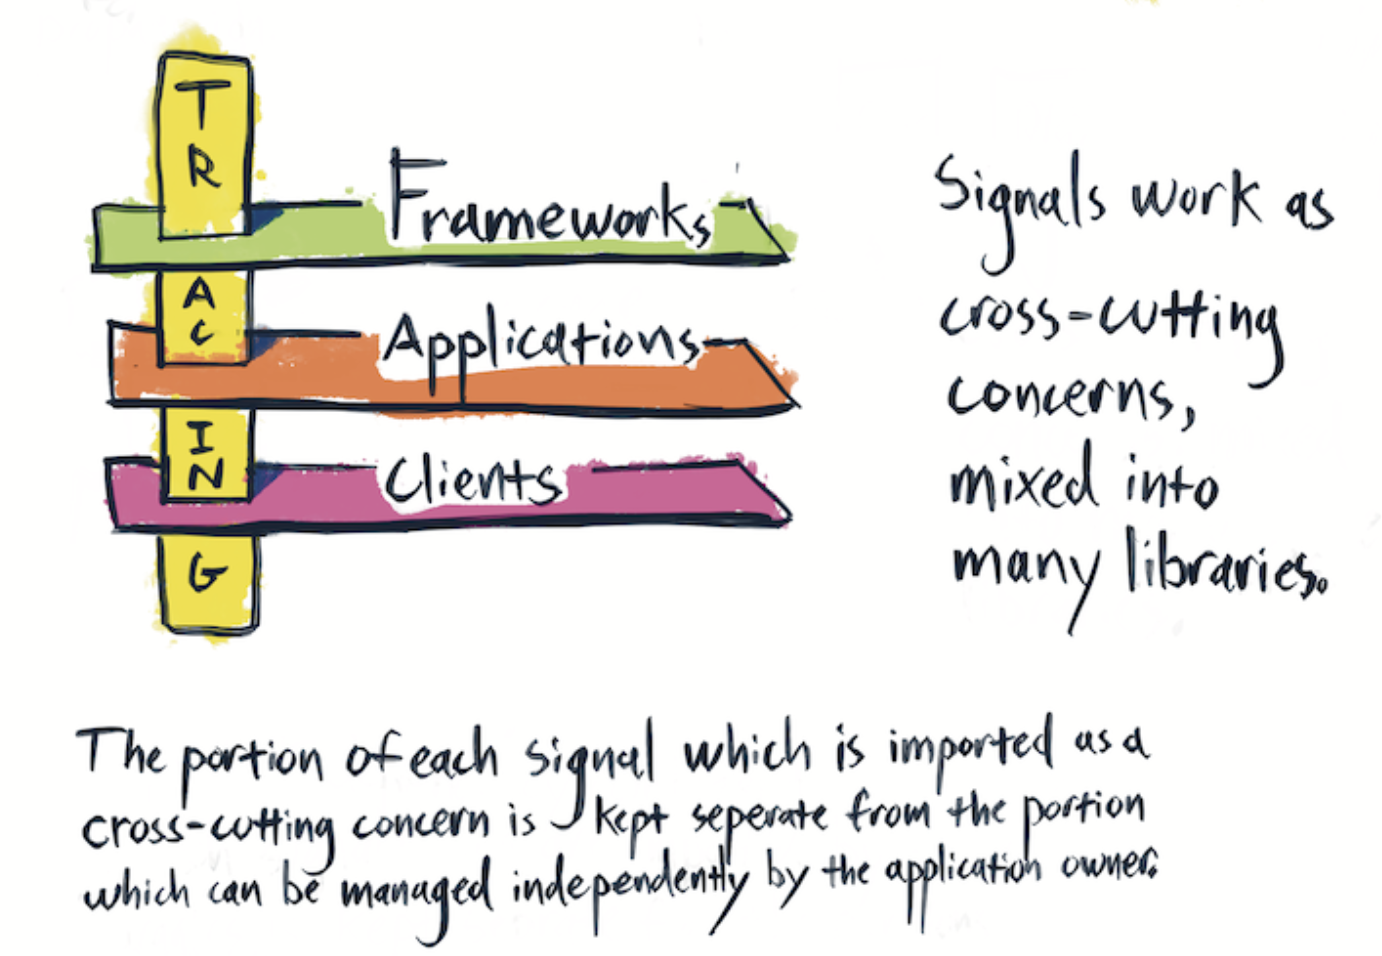 TRACING
Frameworks
Applications
Clients
Signals work as
cross-cutting
concerns,
mixed into
many libraries.
The portion of each signal which is imported as a
cross-cutting concern is kept seperate from the portion
which can be managed independently by the application owner.